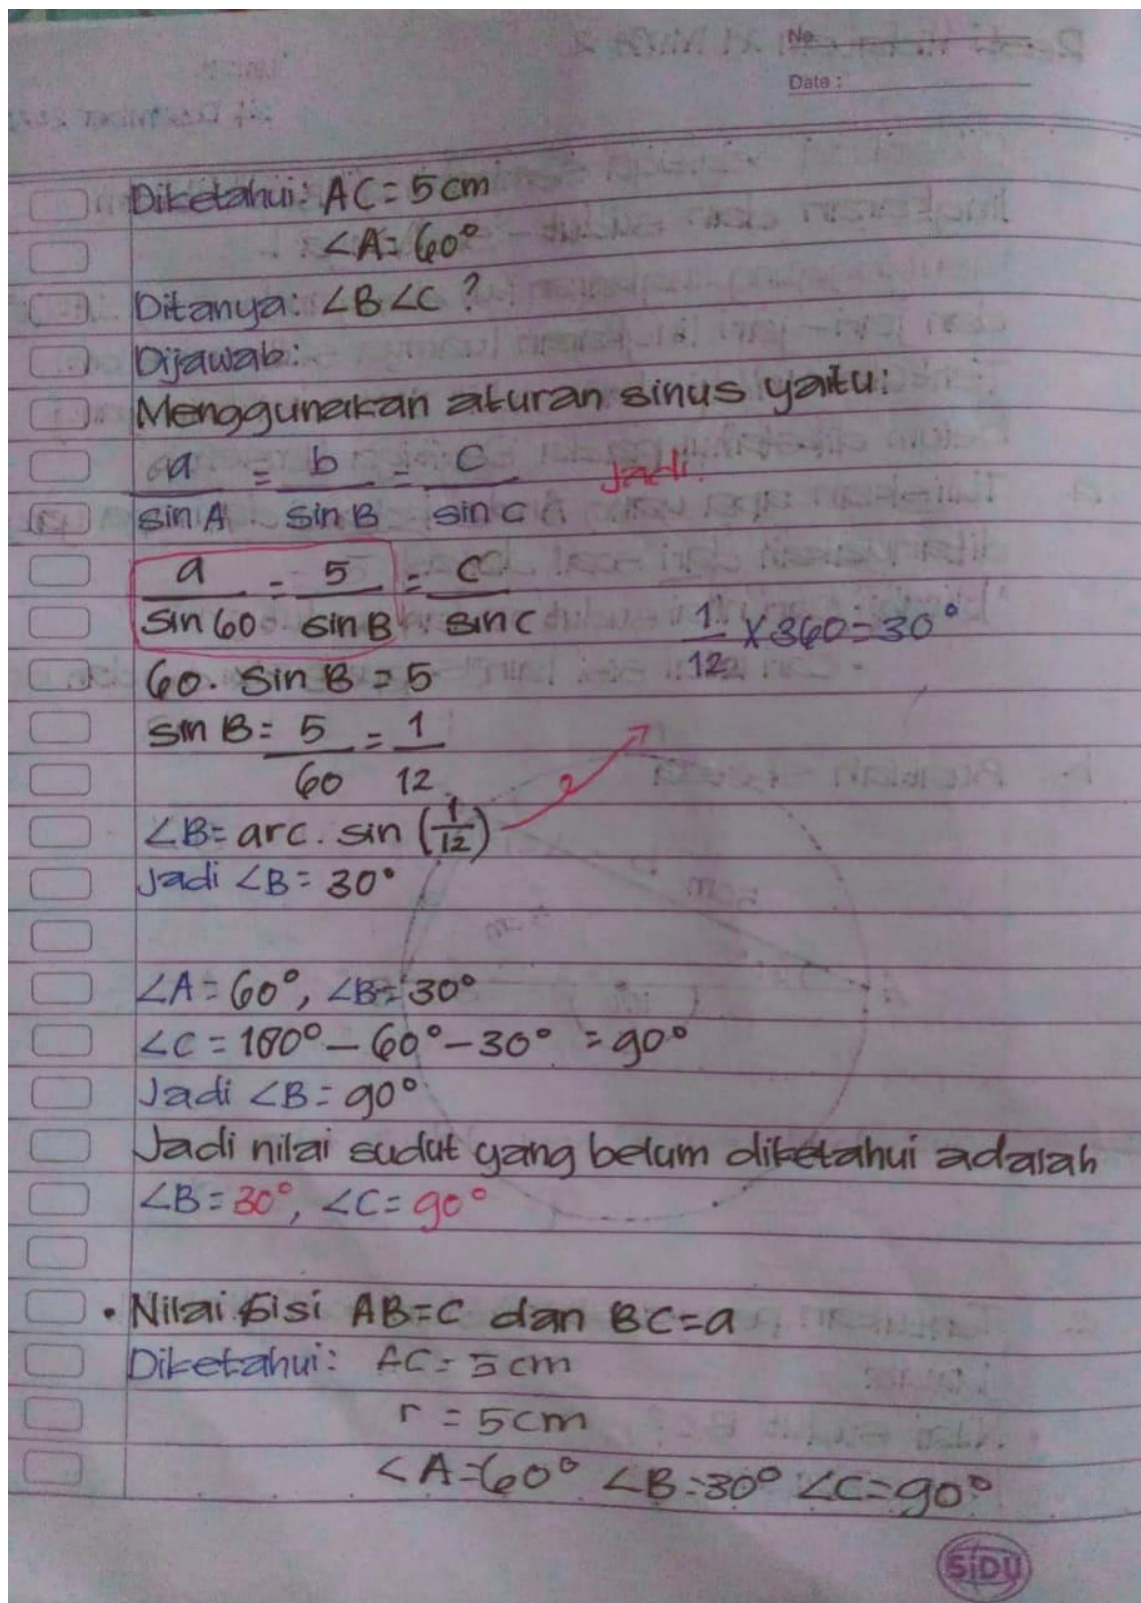 No.
Date :
Diketahui: AC = 5 cm
∠A = 60°
Ditanya: ∠B ∠C ?
Dijawab:
Menggunakan aturan sinus yaitu:
a/sin A = b/sin B = c/sin C Jadi:
a/sin 60 = 5/sin B = c/sin C
1/12 x 360 = 30°
60. sin B = 5
sin B = 5/60 = 1/12
∠B = arc. sin (1/12)
Jadi ∠B = 30°
∠A = 60°, ∠B = 30°
∠C = 180° - 60° - 30° = 90°
Jadi ∠B = 90°
Jadi nilai sudut yang belum diketahui adalah
∠B = 30°, ∠C = 90°
• Nilai sisi AB = C dan BC = a
Diketahui: AC = 5 cm
r = 5 cm
∠A = 60° ∠B = 30° ∠C = 90°
SiDU